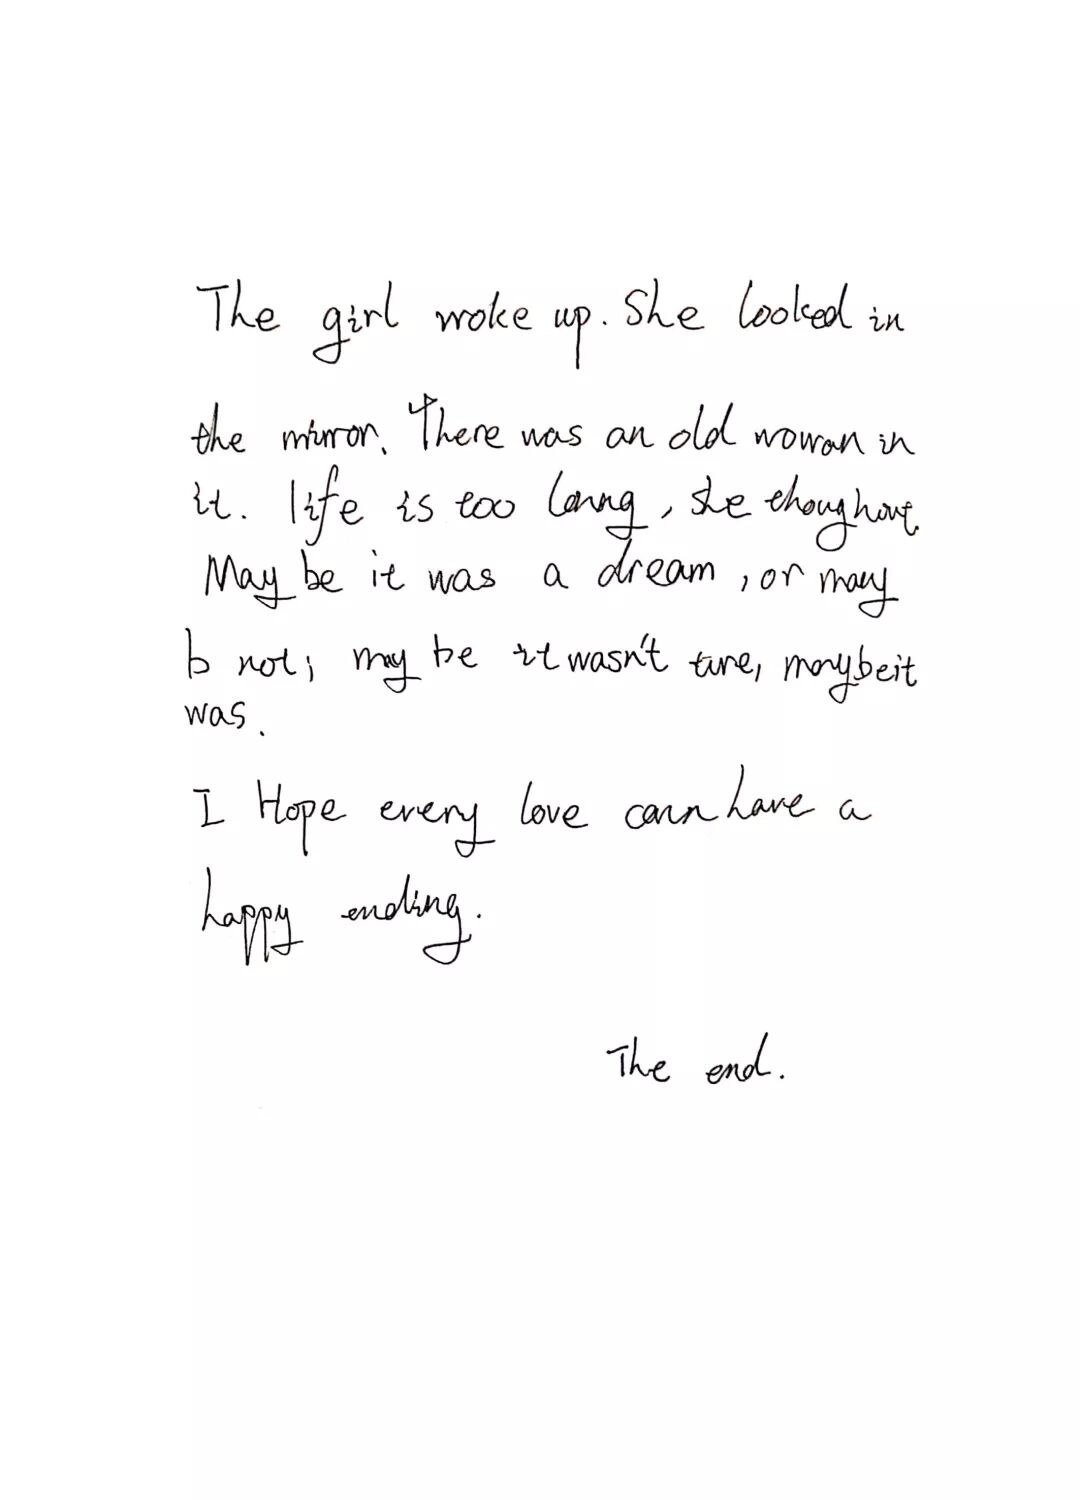 The girl woke up. She looked in
the mirror. There was an old wowan in
it. life is too lonng, she thoughout.
May be it was a dream, or may
b not; may be it wasn't ture, maybe it
was.
I Hope every love cann have a
happy ending.
The end.